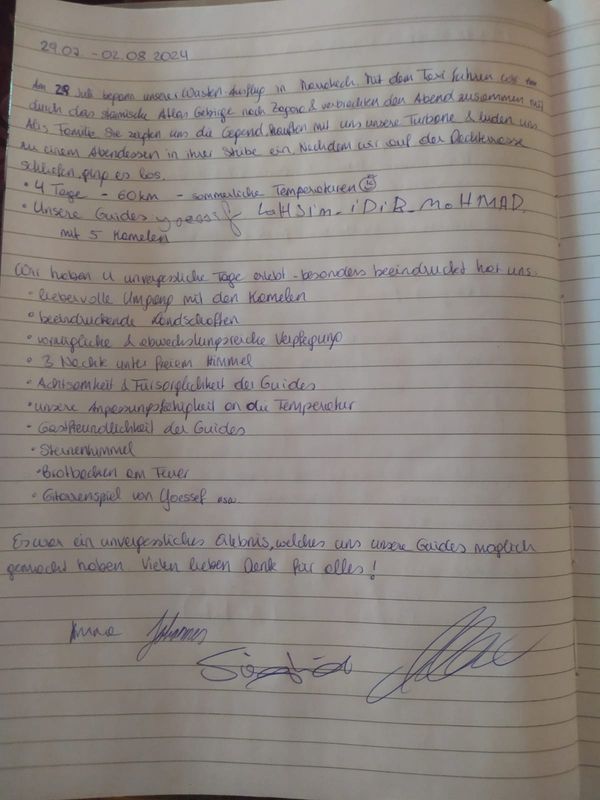 29.07 - 02.08 2024
Am 29 Juli begann unserer Wüsten-Ausflug in Marrakech. Mit dem Taxi fuhren wir
durch das Atlas Gebirge nach Zagora & verbrachten den Abend zusammen mit
Alis Familie. Sie zeigten uns die Gegend, kauften mit uns unsere Turbane & luden uns
zu einem Abendessen in ihrer Stube ein. Nachdem wir auf der Dachterrasse
schliefen, ging es los.
• 4 Tage - 60km - sommerliche Temperaturen
• Unsere Guides yoessif LaHSim - iDiR - MoHMAD
mit 5 Kamelen
Wir haben 4 unvergessliche Tage erlebt - besonders beeindruckt hat uns:
• liebevolle Umgang mit den Kamelen
• beeindruckende Landschaften
• vorzügliche & abwechslungsreiche Verpflegung
• 3 Nächte unter freiem Himmel
• Achtsamkeit & Fürsorglichkeit der Guides
• unsere Anpassungsfähigkeit an die Temperatur
• Gastfreundlichkeit der Guides
• Sternenhimmel
• Brotbacken am Feuer
• Gitarrenspiel von Yoessef usw.
Es war ein unvergessliches Erlebnis, welches uns unsere Guides möglich
gemacht haben. Vielen lieben Dank für alles!
Anna Johannes